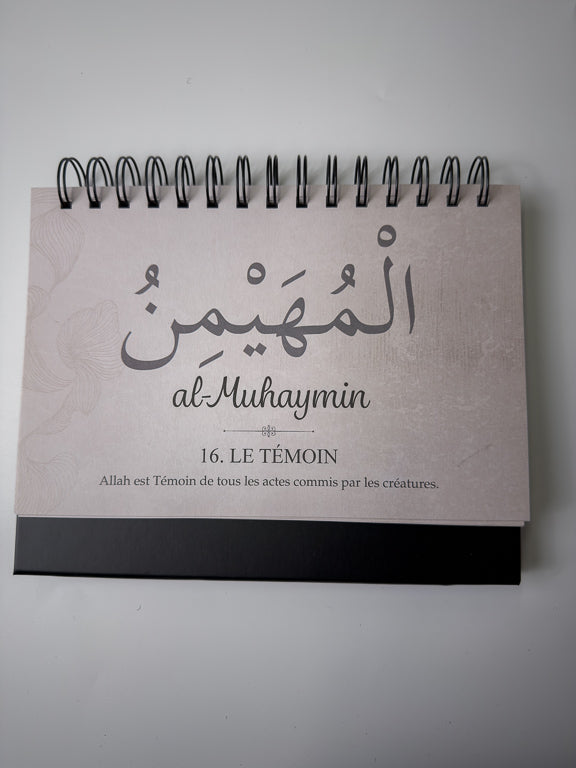 الْمُهَيْمِنُ
al-Muhaymin
16. LE TÉMOIN
Allah est Témoin de tous les actes commis par les créatures.